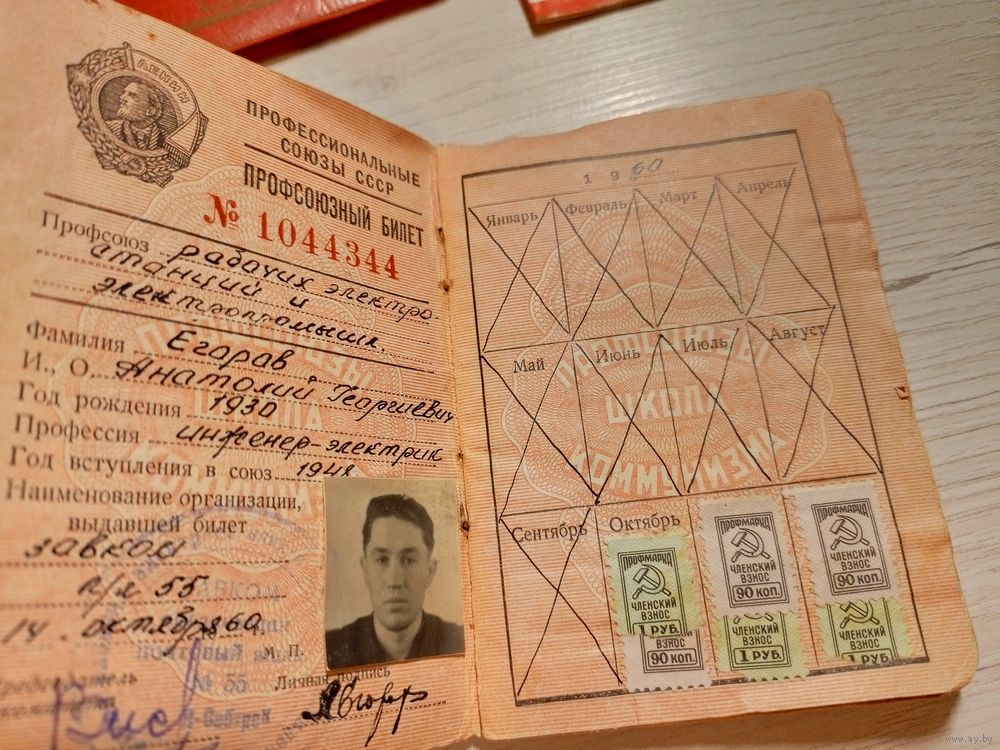 ЛЕНИН
ПРОФЕССИОНАЛЬНЫЕ
СОЮЗЫ СССР
ПРОФСОЮЗНЫЙ БИЛЕТ
№ 1044344
Профсоюз рабочих электро-
станций и
электропромышл.
Фамилия Егоров
И., О. Анатолий Георгиевич
Год рождения 1930
Профессия инженер-электрик
Год вступления в союз 1948
Наименование организации,
выдавшей билет
завком
п/я 55
14 октября 60
М. П.
почтовый
№ 55
Личная подпись
Егоров
1960
Январь Февраль Март Апрель
Май Июнь Июль Август
Сентябрь Октябрь
ПРОФСОЮЗЫ
ШКОЛА
КОММУНИЗМА
ПРОФМАРКА
ЧЛЕНСКИЙ
ВЗНОС
1 РУБ.
ВЗНОС
90 КОП.
ПРОФМАРКА
ЧЛЕНСКИЙ
ВЗНОС
90 КОП.
ЧЛЕНСКИЙ
ВЗНОС
1 РУБ.
ПРОФМАРКА
ЧЛЕНСКИЙ
ВЗНОС
90 КОП.
ЧЛЕНСКИЙ
ВЗНОС
1 РУБ.
www.ay.by